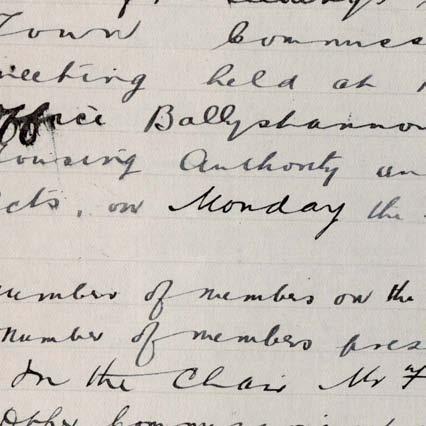 Town Commiss
meeting held at
Office Ballyshannon
Housing Authority un
cts, on Monday the
number of members on the
number of members pres
In the Chair Mr F
Other Commissi